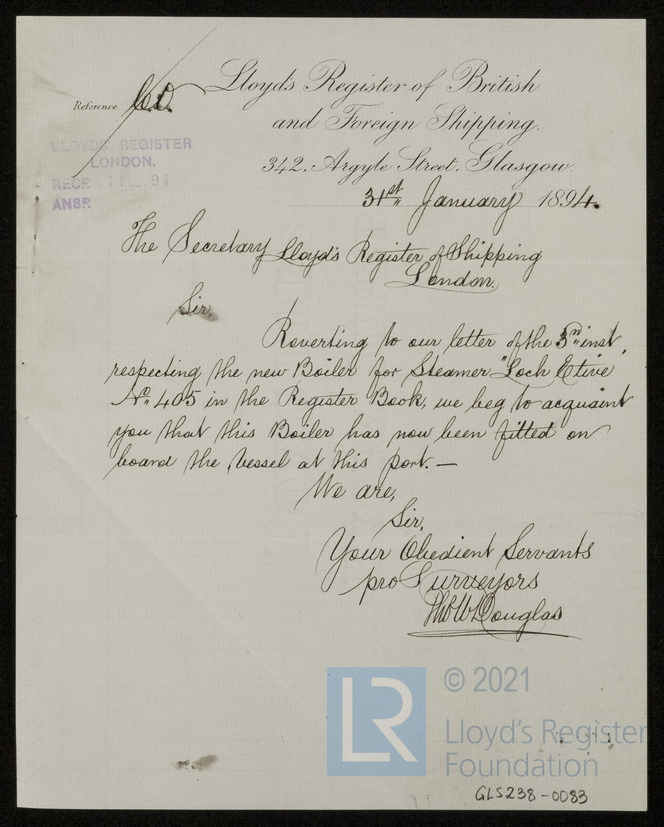 Lloyds Register of British
and Foreign Shipping.
Reference
342, Argyle Street, Glasgow.
LLOYDS REGISTER
LONDON.
RECD
94
ANSD.
31st January 1894.
The Secretary Lloyd's Register of Shipping
London.
Sir,
Reverting to our letter of the inst,
respecting the new Boiler for Steamer "Loch Etive"
No. 405 in the Register Book, we beg to acquaint
you that this Boiler has now been fitted on
board the Vessel at this port. —
We are,
Sir,
Your Obedient Servants
pro Surveyors
Thos W Douglas
LR
© 2021
Lloyd's Register
Foundation
GLS238-0083